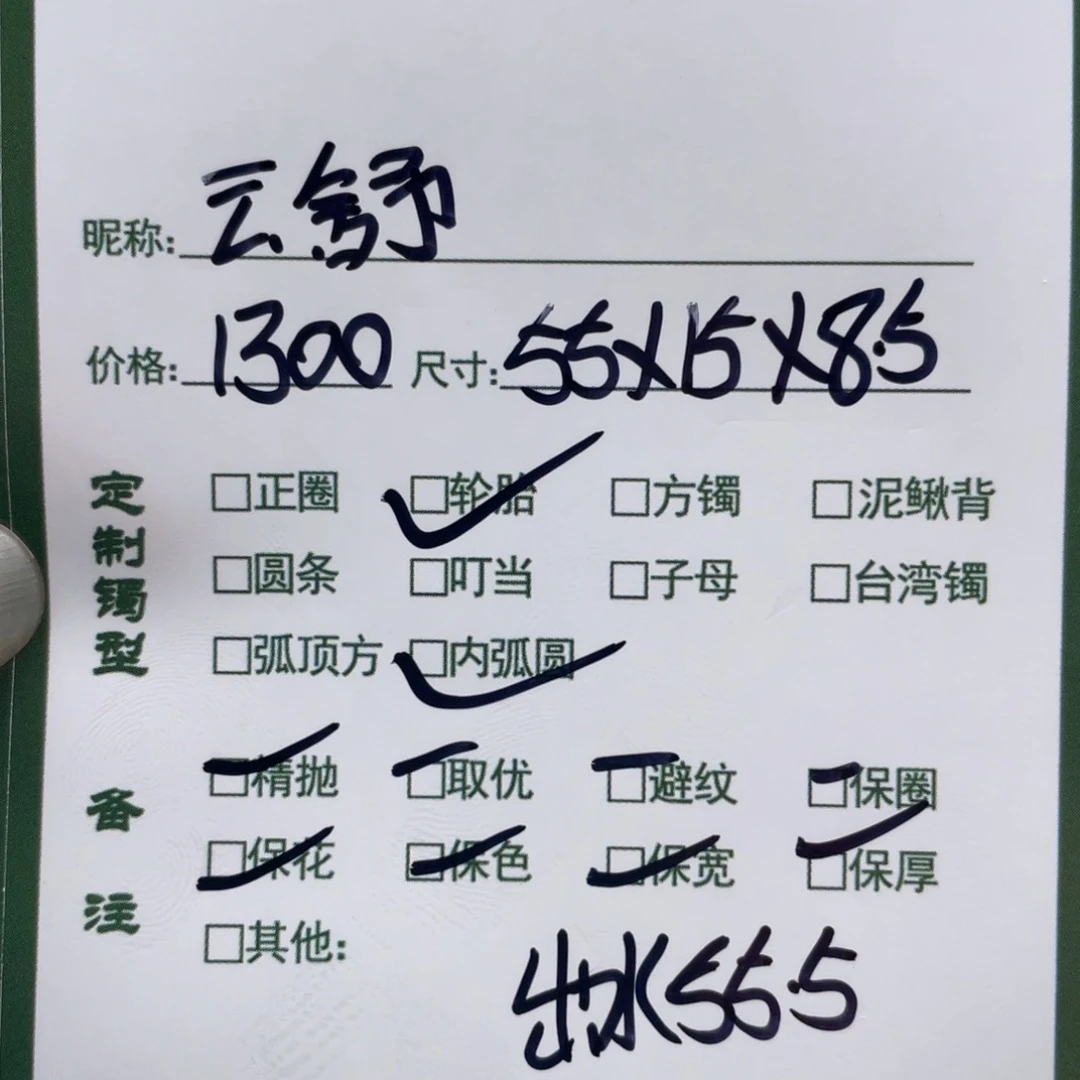 昵称: 云舒
价格: 1300 尺寸: 55X15X8.5
定制镯型
□正圈 □轮胎 □方镯 □泥鳅背
□圆条 □叮当 □子母 □台湾镯
□弧顶方 □内弧圆
备注
□精抛 □取优 □避纹 □保圈
□保花 □保色 □保宽 □保厚
□其他: 出水55.5